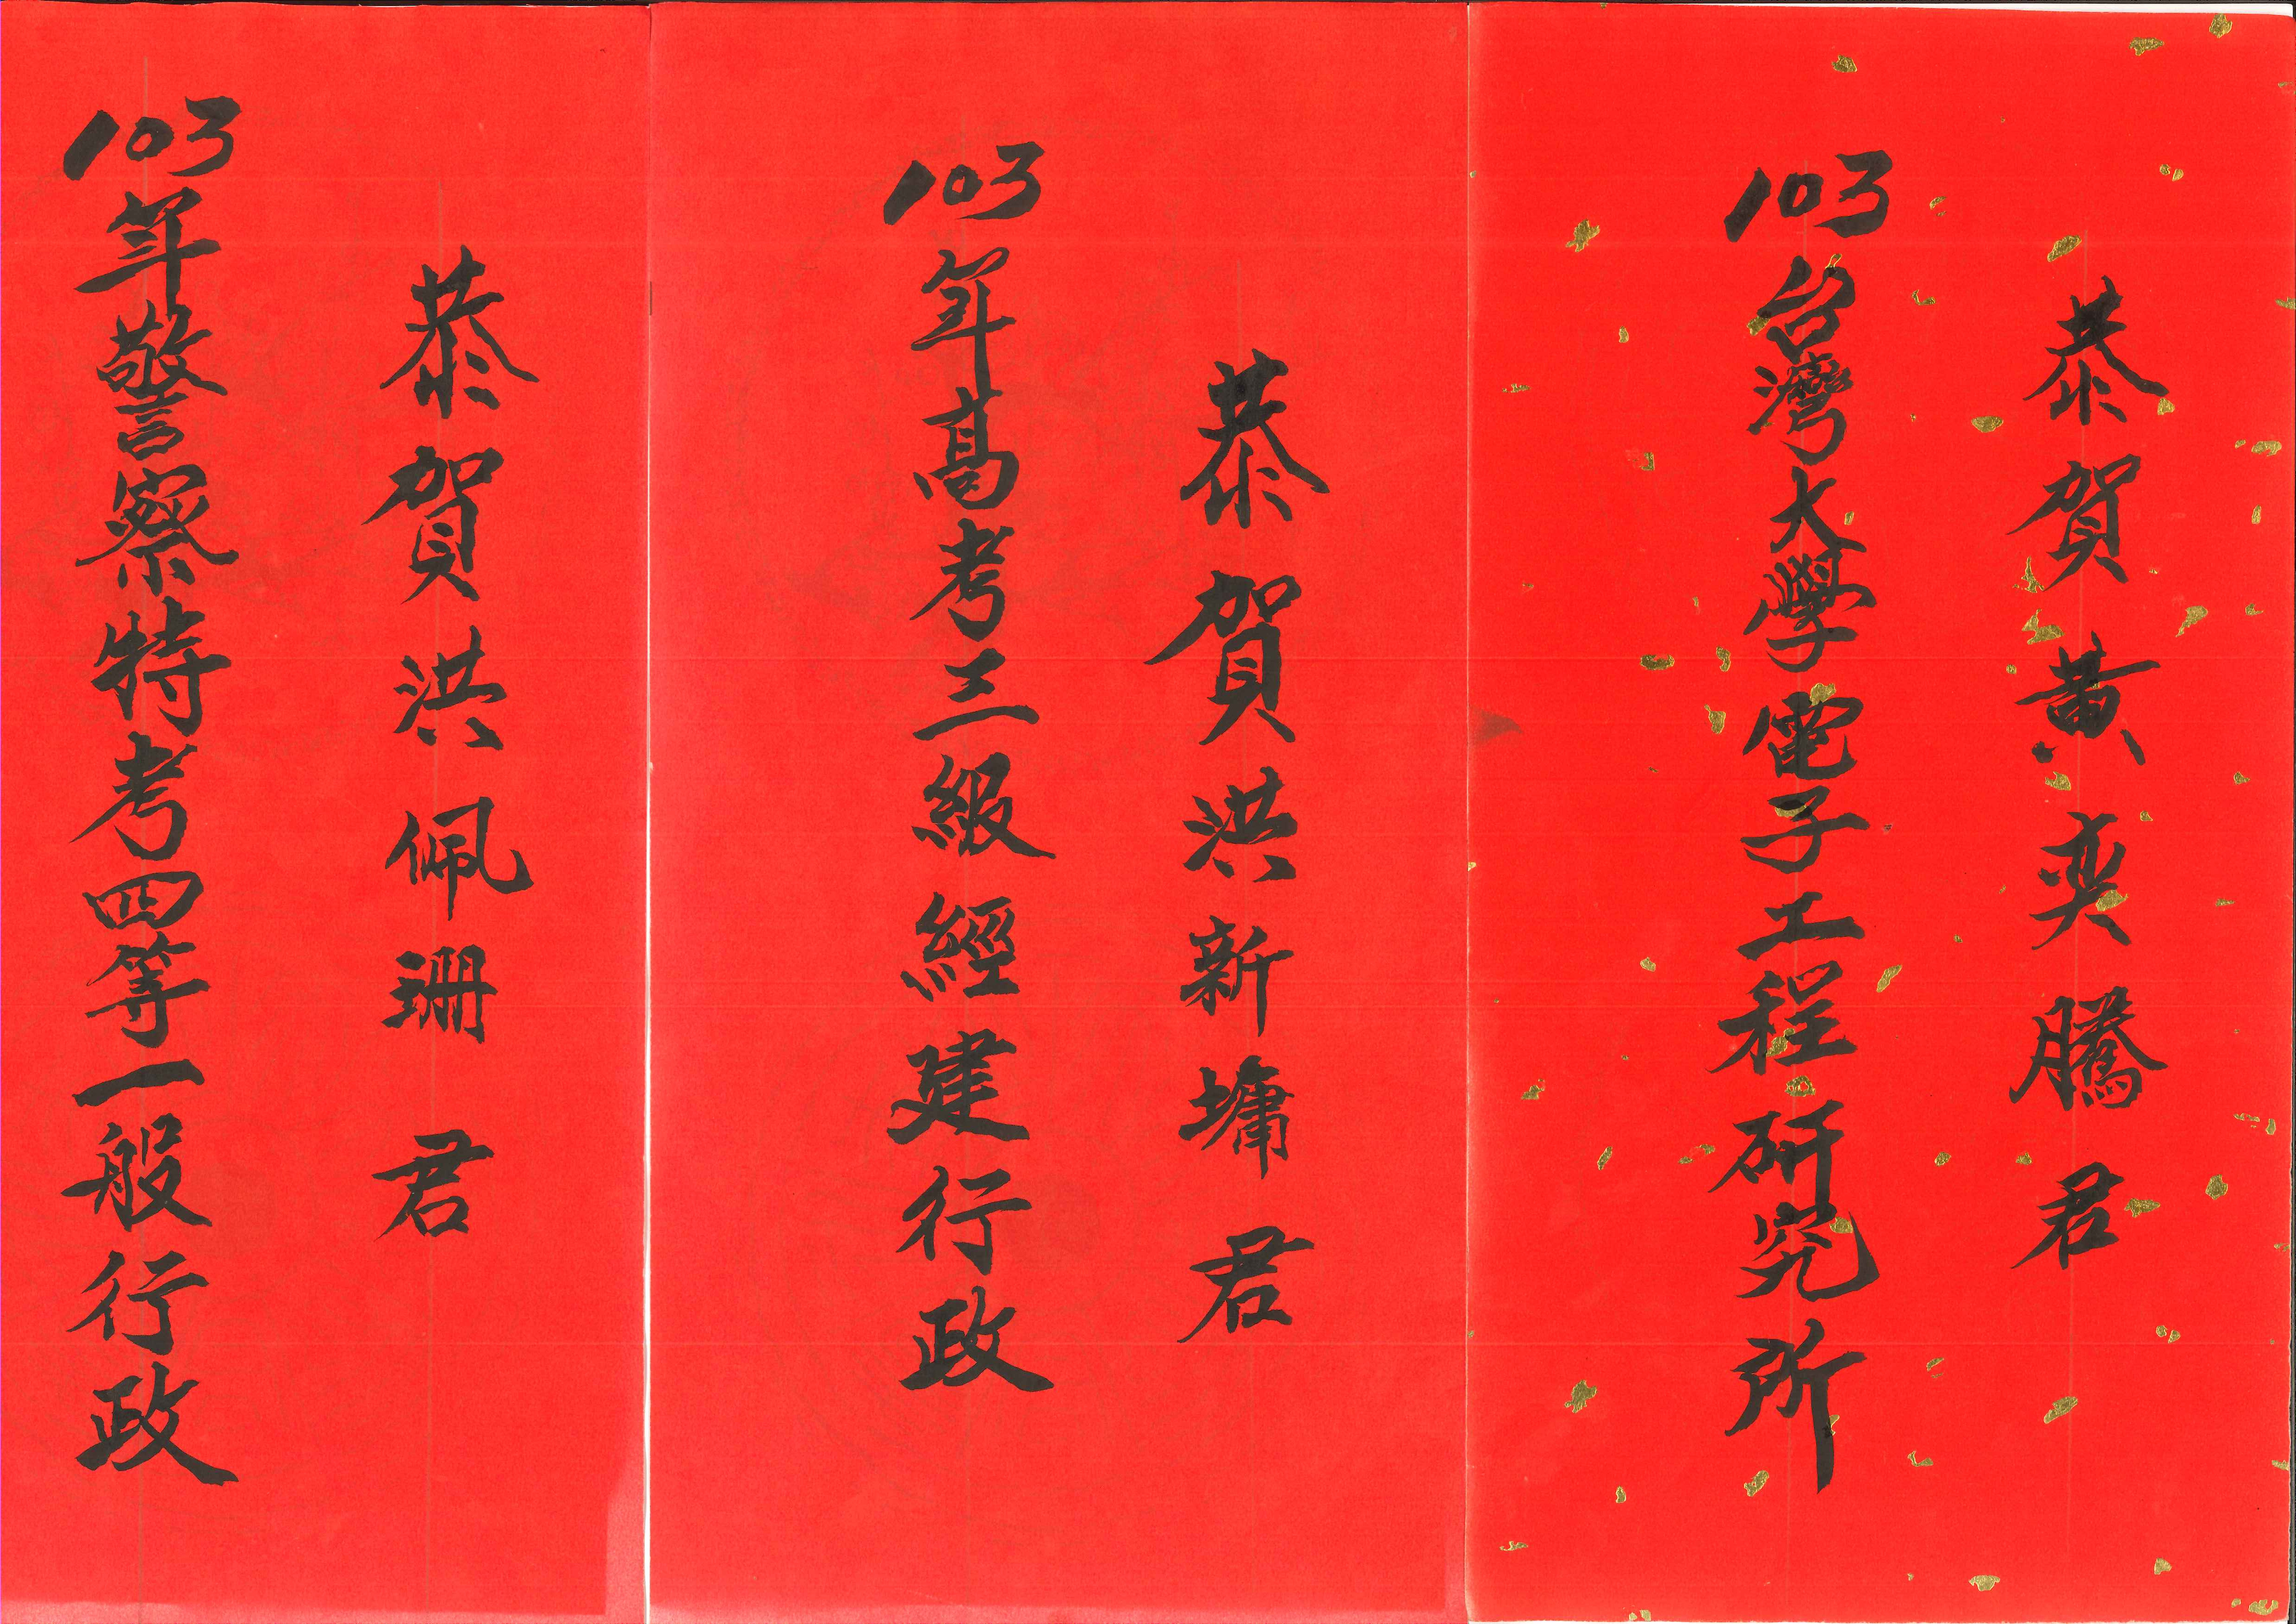 恭賀黃奕騰君
103台灣大學電子工程研究所
恭賀洪新墉君
103年高考三級經建行政
恭賀洪佩珊君
103年警察特考四等一般行政